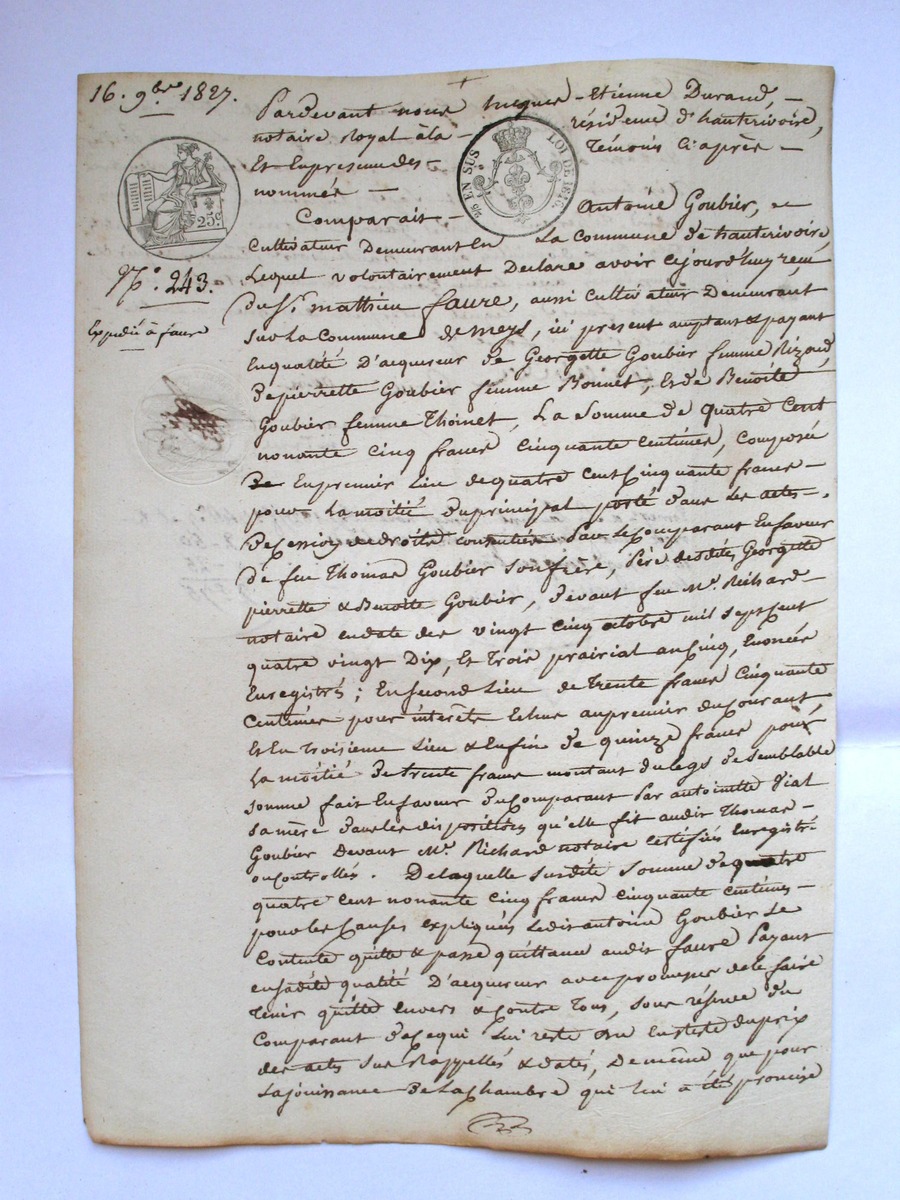 16. 9bre 1827.
Pardevant nous Jacques-Etienne Durand, -
notaire royal à la - résidence d'hauterivoire,
Et En presence des - Temoins Ci après -
nommés -
25 EN SUS LOI DE 1816.
25c.
Comparait - Antoine Goubier,
Cultivateur Demeurant En La Commune de hauterivoire,
N°. 243.
Lequel volontairement Declare avoir cejourd'huy reçu
Expedié à faure
du Sr. mathieu faure, aussi cultivateur Demeurant
sur La Commune de meys, ici present acceptant & payant
En qualité D'acquereur de Georgette Goubier femme Rizoud,
de pierrette Goubier femme Bonnet, Et de Benoite
Goubier femme Thoinet, La Somme de quatre Cent
nonante cinq francs Cinquante Centimes, composée
de En premier Lieu de quatre Cent Cinquante francs -
pour La moitié du principal porté dans Les actes -
de Cession de droits consenties Par Le Comparant En faveur
de feu Thomas Goubier son frère, Père des dites Georgette
pierrette & Benoite Goubier, devant feu Me. Richard -
notaire en date des vingt Cinq octobre mil sept Cent
quatre vingt Dix, Et Trois prairial an Cinq, Enoncés
Enregistrés ; En second Lieu de Trente francs Cinquante
Centimes pour intérêts Echus au premier du Courant,
Et En Troisieme Lieu & Enfin de quinze francs pour
La moitié de trente francs montant du legs de semblable
somme fait En faveur du Comparant Par antoinette Viat
sa mère dans les dispositions qu'elle fit audit Thomas -
Goubier Devant Me. Richard notaire Certifiés Enregistré
ou Controllés. De laquelle susdite somme de quatre
quatre cent nonante cinq francs cinquante centimes -
pour les Causes expliquées Ledit antoine Goubier Se
Contente quitte & passe quittance audit faure Payant
en sadite qualité D'acquereur avec promesse de le faire
Tenir quitte envers & Contre Tous, sous réserve du
Comparant de Ce qui lui reste du En reste du prix
des actes sus Rappellés & datés, De même que pour
La jouissance de La Chambre qui lui a été promise